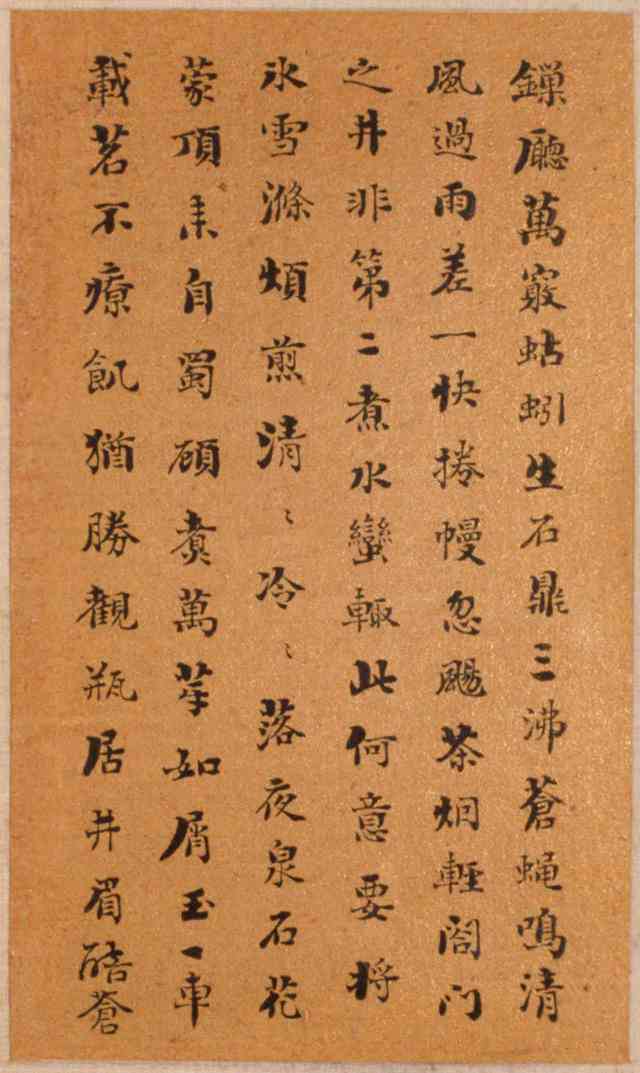 鏁廳萬竅蛄蚓生石鼎三沸蒼蠅鳴清
風過雨差一快捲幔忽颺茶烟輕閤門
之井非第二煮水蠻輙此何意要將
氷雪滌煩煎清〻冷〻落夜泉石花
蒙頂来自蜀頋渚萬芽如屑玉一車
載茗不療飢猶勝觀瓶居井眉酪蒼